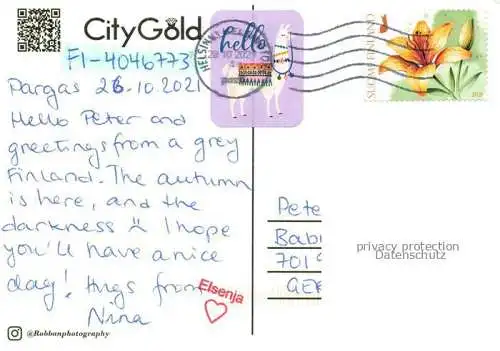 CityGold
hello
HELSINKI
SUOMI FINLAND
FI-4046773
Pargas 26-10.2021
Hello Peter and
greetings from a grey
Finland. The autumn
is here, and the
darkness :( I hope
you'll have a nice
day! Hugs from
Nina
Elsenja
@Rabbanphotography
Pete
Bab
701
GE
privacy protection
Datenschutz